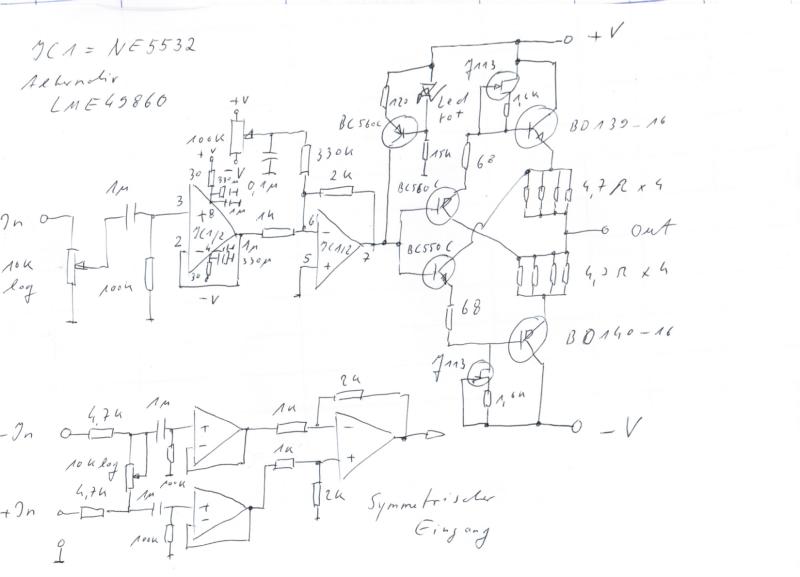 IC1 = NE5532
Alternativ
LME49860
+V
100K
+V
-V
30
330µ
1µ
0,1µ
330K
2K
1µ
3
+8
IC1/2
2
-4
1µ
330µ
30
-V
1K
6
-
IC1/2
5
+
7
In
10K
log
100K
120
BC560C
Led
rot
15K
J113
1,6K
+V
BD139-16
68
BC560C
4,7R x 4
Out
BC550C
4,7R x 4
68
BD140-16
J113
1,6K
-V
-In
4,7K
1µ
+
-
1K
2K
-
+
10K log
100K
1K
+In
4,7K
1µ
+
-
2K
100K
Symmetrischer
Eingang